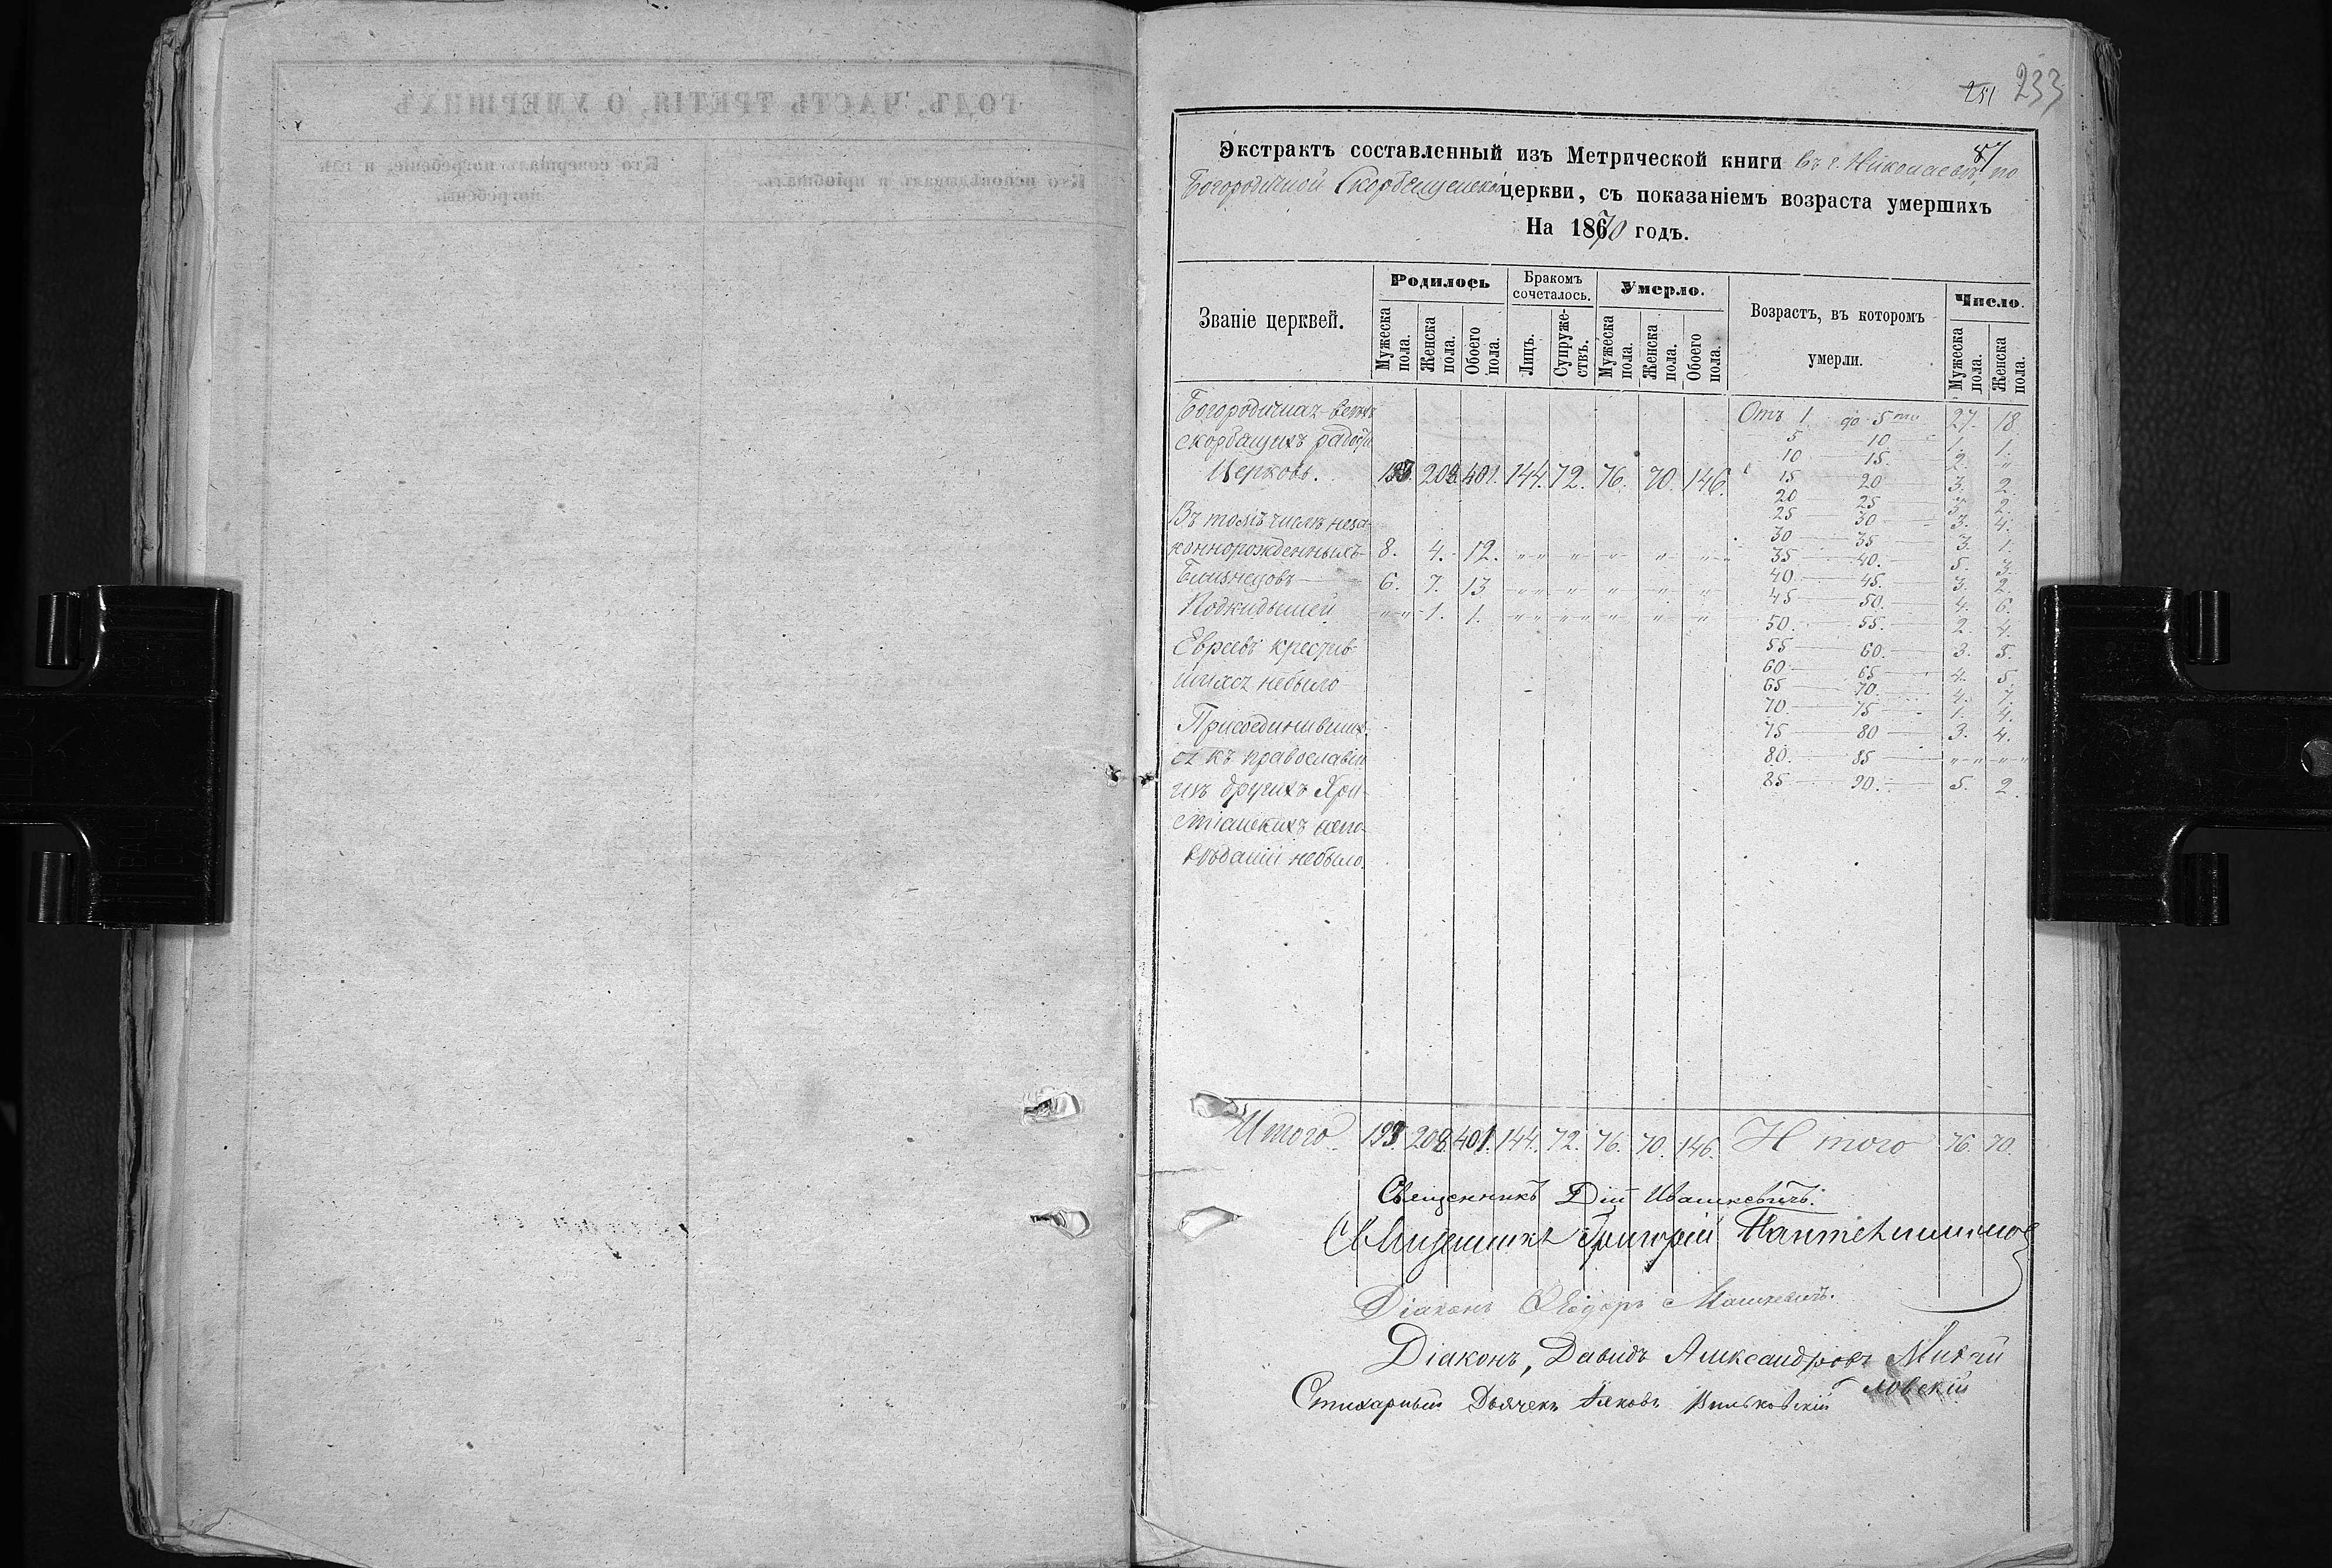 251 233
87
Экстрактъ составленный изъ Метрической книги въ г. Николаевѣ, по
Богородичной Скорбященской церкви, съ показаніемъ возраста умершихъ
На 1870 годъ.
Званіе церквей.
Родилось
Бракомъ сочеталось.
Умерло.
Возрастъ, въ которомъ умерли.
Число.
Мужеска пола.
Женска пола.
Обоего пола.
Лицъ.
Супружествъ.
Мужеска пола.
Женска пола.
Обоего пола.
Мужеска пола.
Женска пола.
Богородичная всѣхъ
скорбящихъ радости
Церковь. 193. 208. 401. 144. 72. 76. 70. 146.
Въ томъ числѣ неза-
коннорожденныхъ 8. 4. 12. " " " " " "
Близнецовъ 6. 7. 13 " " " " " "
Подкидышей " " 1. 1. " " " " " "
Евреевъ крестив-
шихся небыло
Присоединивших-
ся къ православію
изъ другихъ Хри-
стіанскихъ испо-
вѣданій небыло.
Отъ 1. до 5ти 27. 18
5 10 1. 1.
10 15. 2. "
15 20 3. 2.
20 25 3. 2.
25 30 3. 4.
30 35 3. 1.
35 40. 5. 3.
40 45. 3. 2.
45 50. 4. 6.
50. 55. 2. 4.
55 60. 3. 5.
60 65 4. 5.
65 70. 4. 7.
70. 75 1. 4.
75 80 3. 4.
80. 85 " " " "
85 90. 5. 2.
Итого 193. 208. 401. 144. 72. 76. 70. 146. Итого 76. 70.
Священникъ Дій Ивашкевичъ.
Священникъ Григорій Пантелимоновъ
Діаконъ Ѳеодоръ Машкевичъ.
Діаконъ, Давидъ Александровъ Михай
ловскій
Стихарный Дьячекъ Яковъ Вильковскій
ГОДЪ, ЧАСТЬ ТРЕТІЯ, О УМЕРШИХЪ
Кто исповѣдывалъ и пріобщалъ.
Кто совершалъ погребеніе, и гдѣ
погребены.